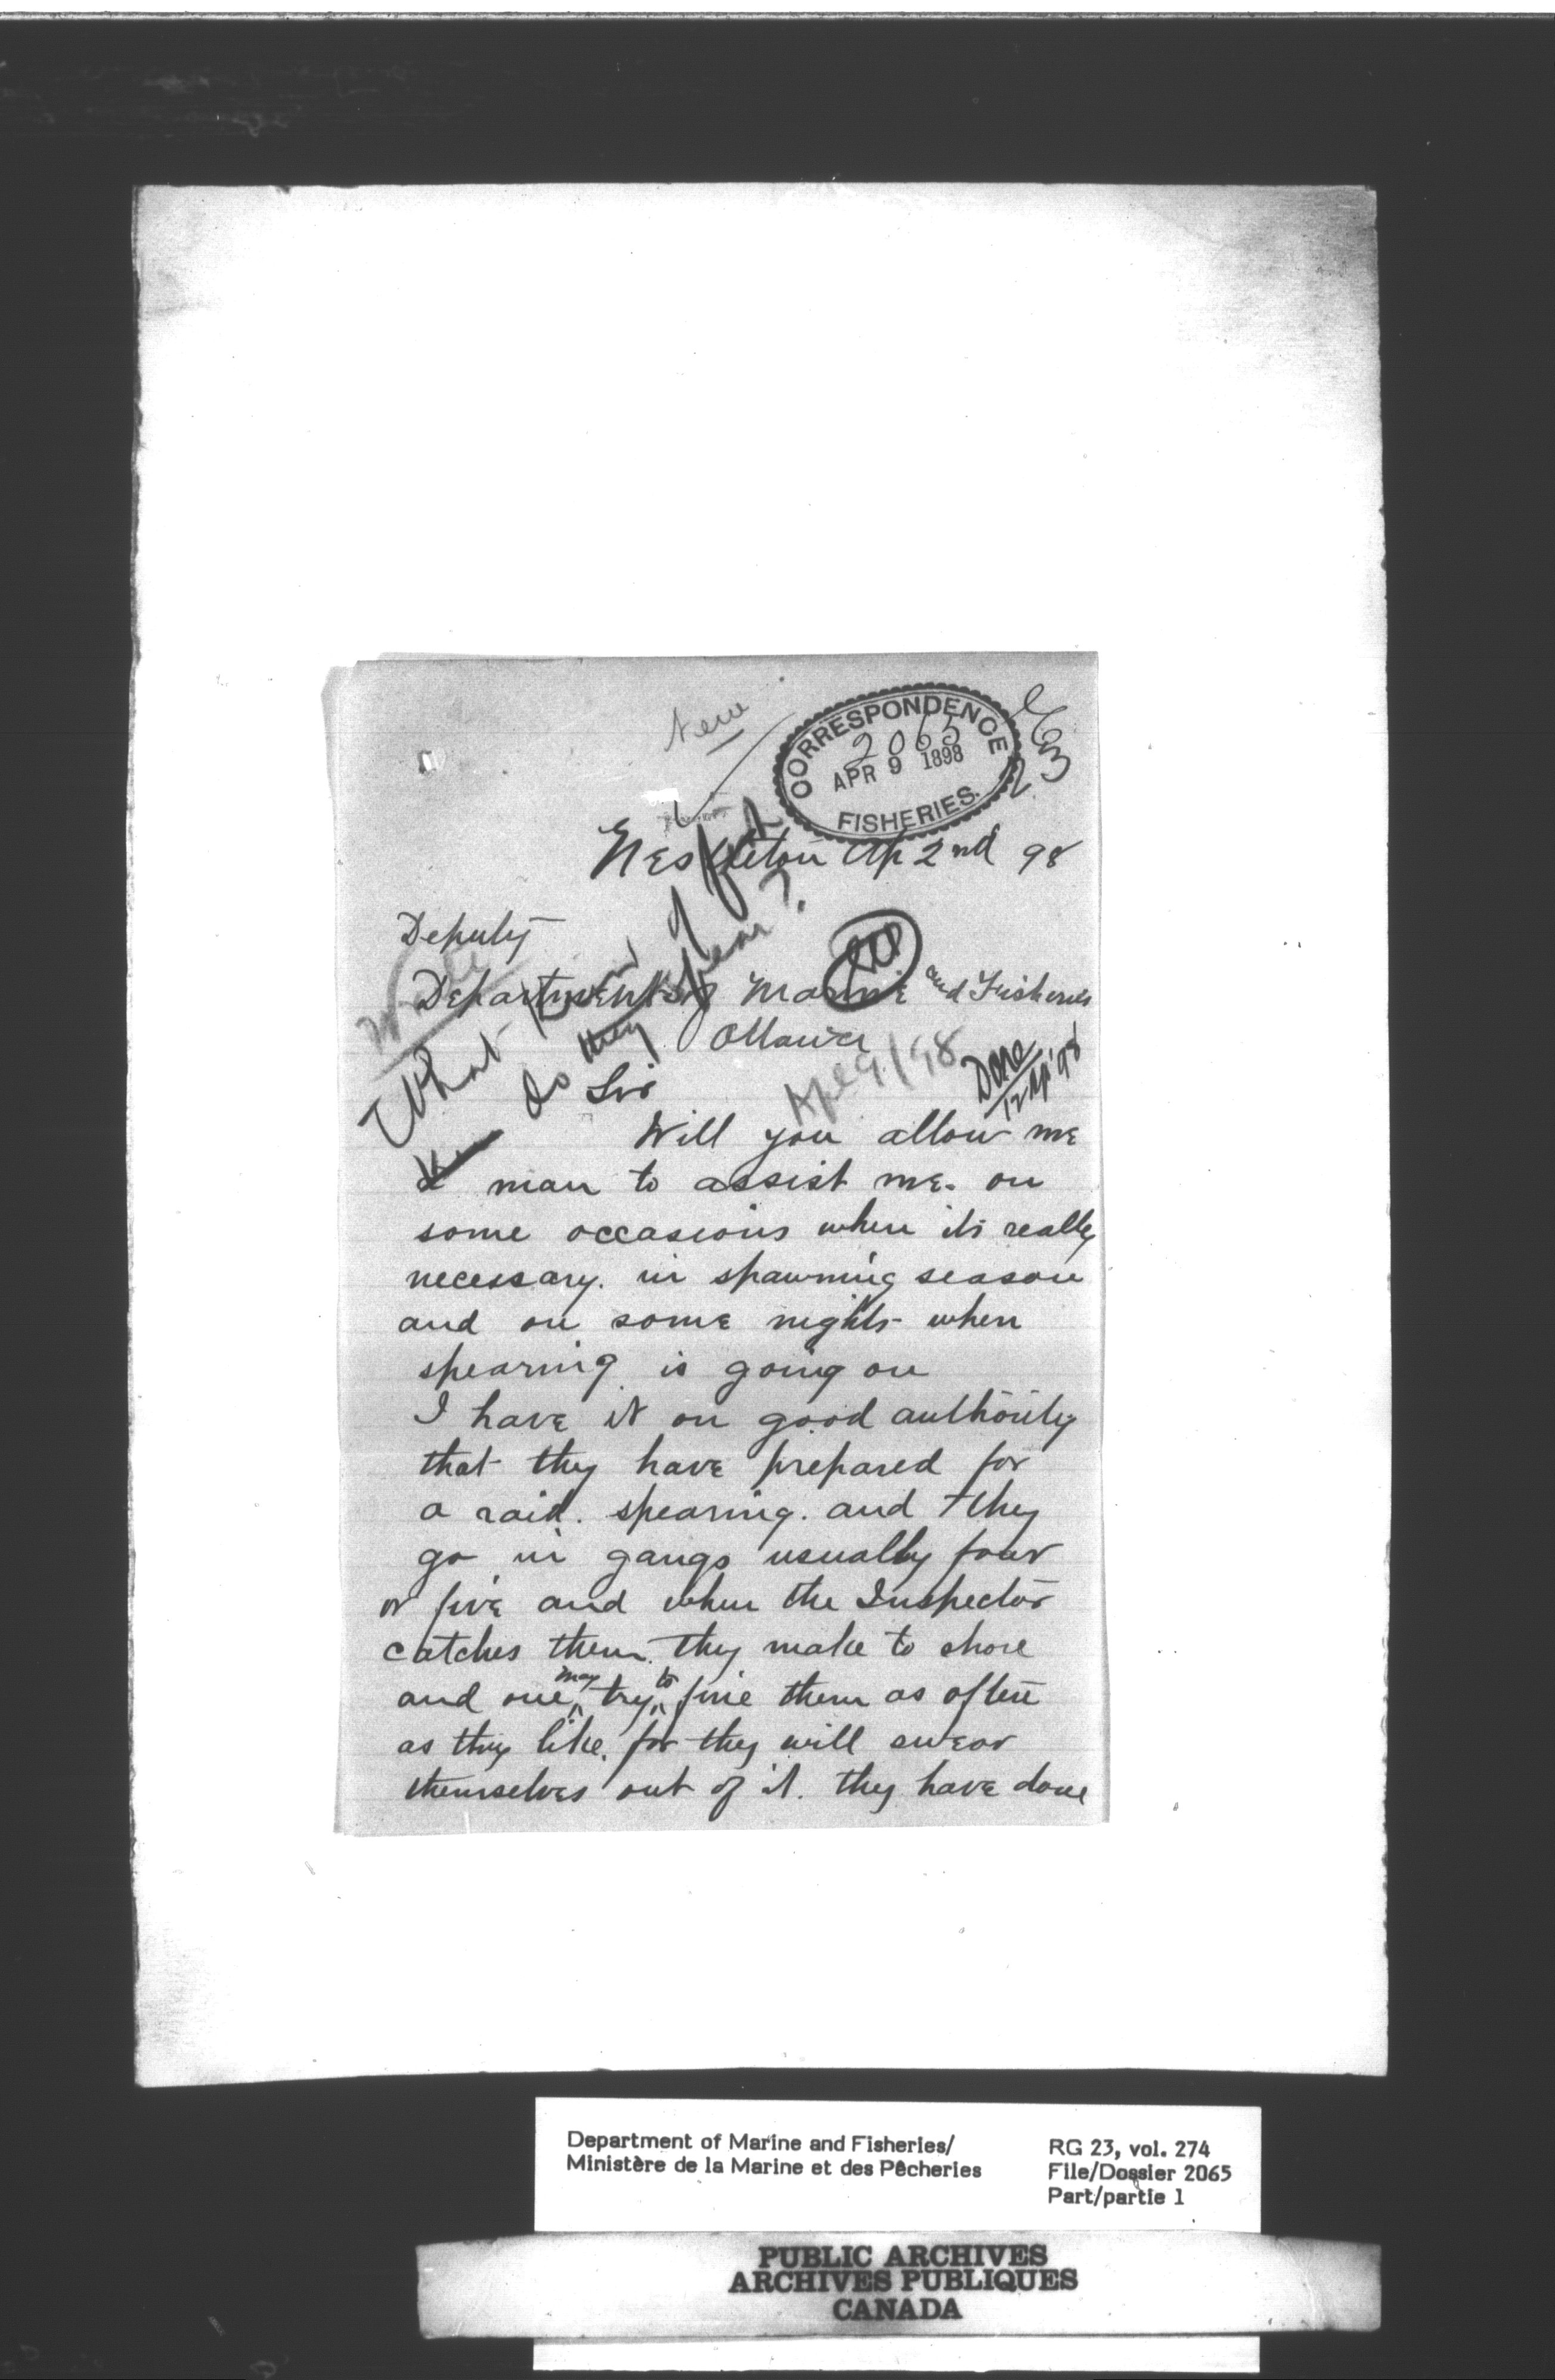 New
CORRESPONDENCE
2065
APR 9 1898
FISHERIES.
Nestleton Ap 2nd 98
Deputy
Department of Marine and Fisheries
Ottawa
What kind of fish
do they spear?
Apl 9/98
Done
12 Ap '98
Sir
Will you allow me
a man to assist me. on
some occasions when its really
necessary. in spawning season
and on some nights when
spearing is going on
I have it on good authority
that they have prepared for
a raid. spearing. and they
go in gangs usually four
or five and when the Inspector
catches them. they make to shore
and one may try to fine them as often
as they like. for they will swear
themselves out of it. they have done
Department of Marine and Fisheries/
Ministère de la Marine et des Pêcheries
RG 23, vol. 274
File/Dossier 2065
Part/partie 1
PUBLIC ARCHIVES
ARCHIVES PUBLIQUES
CANADA